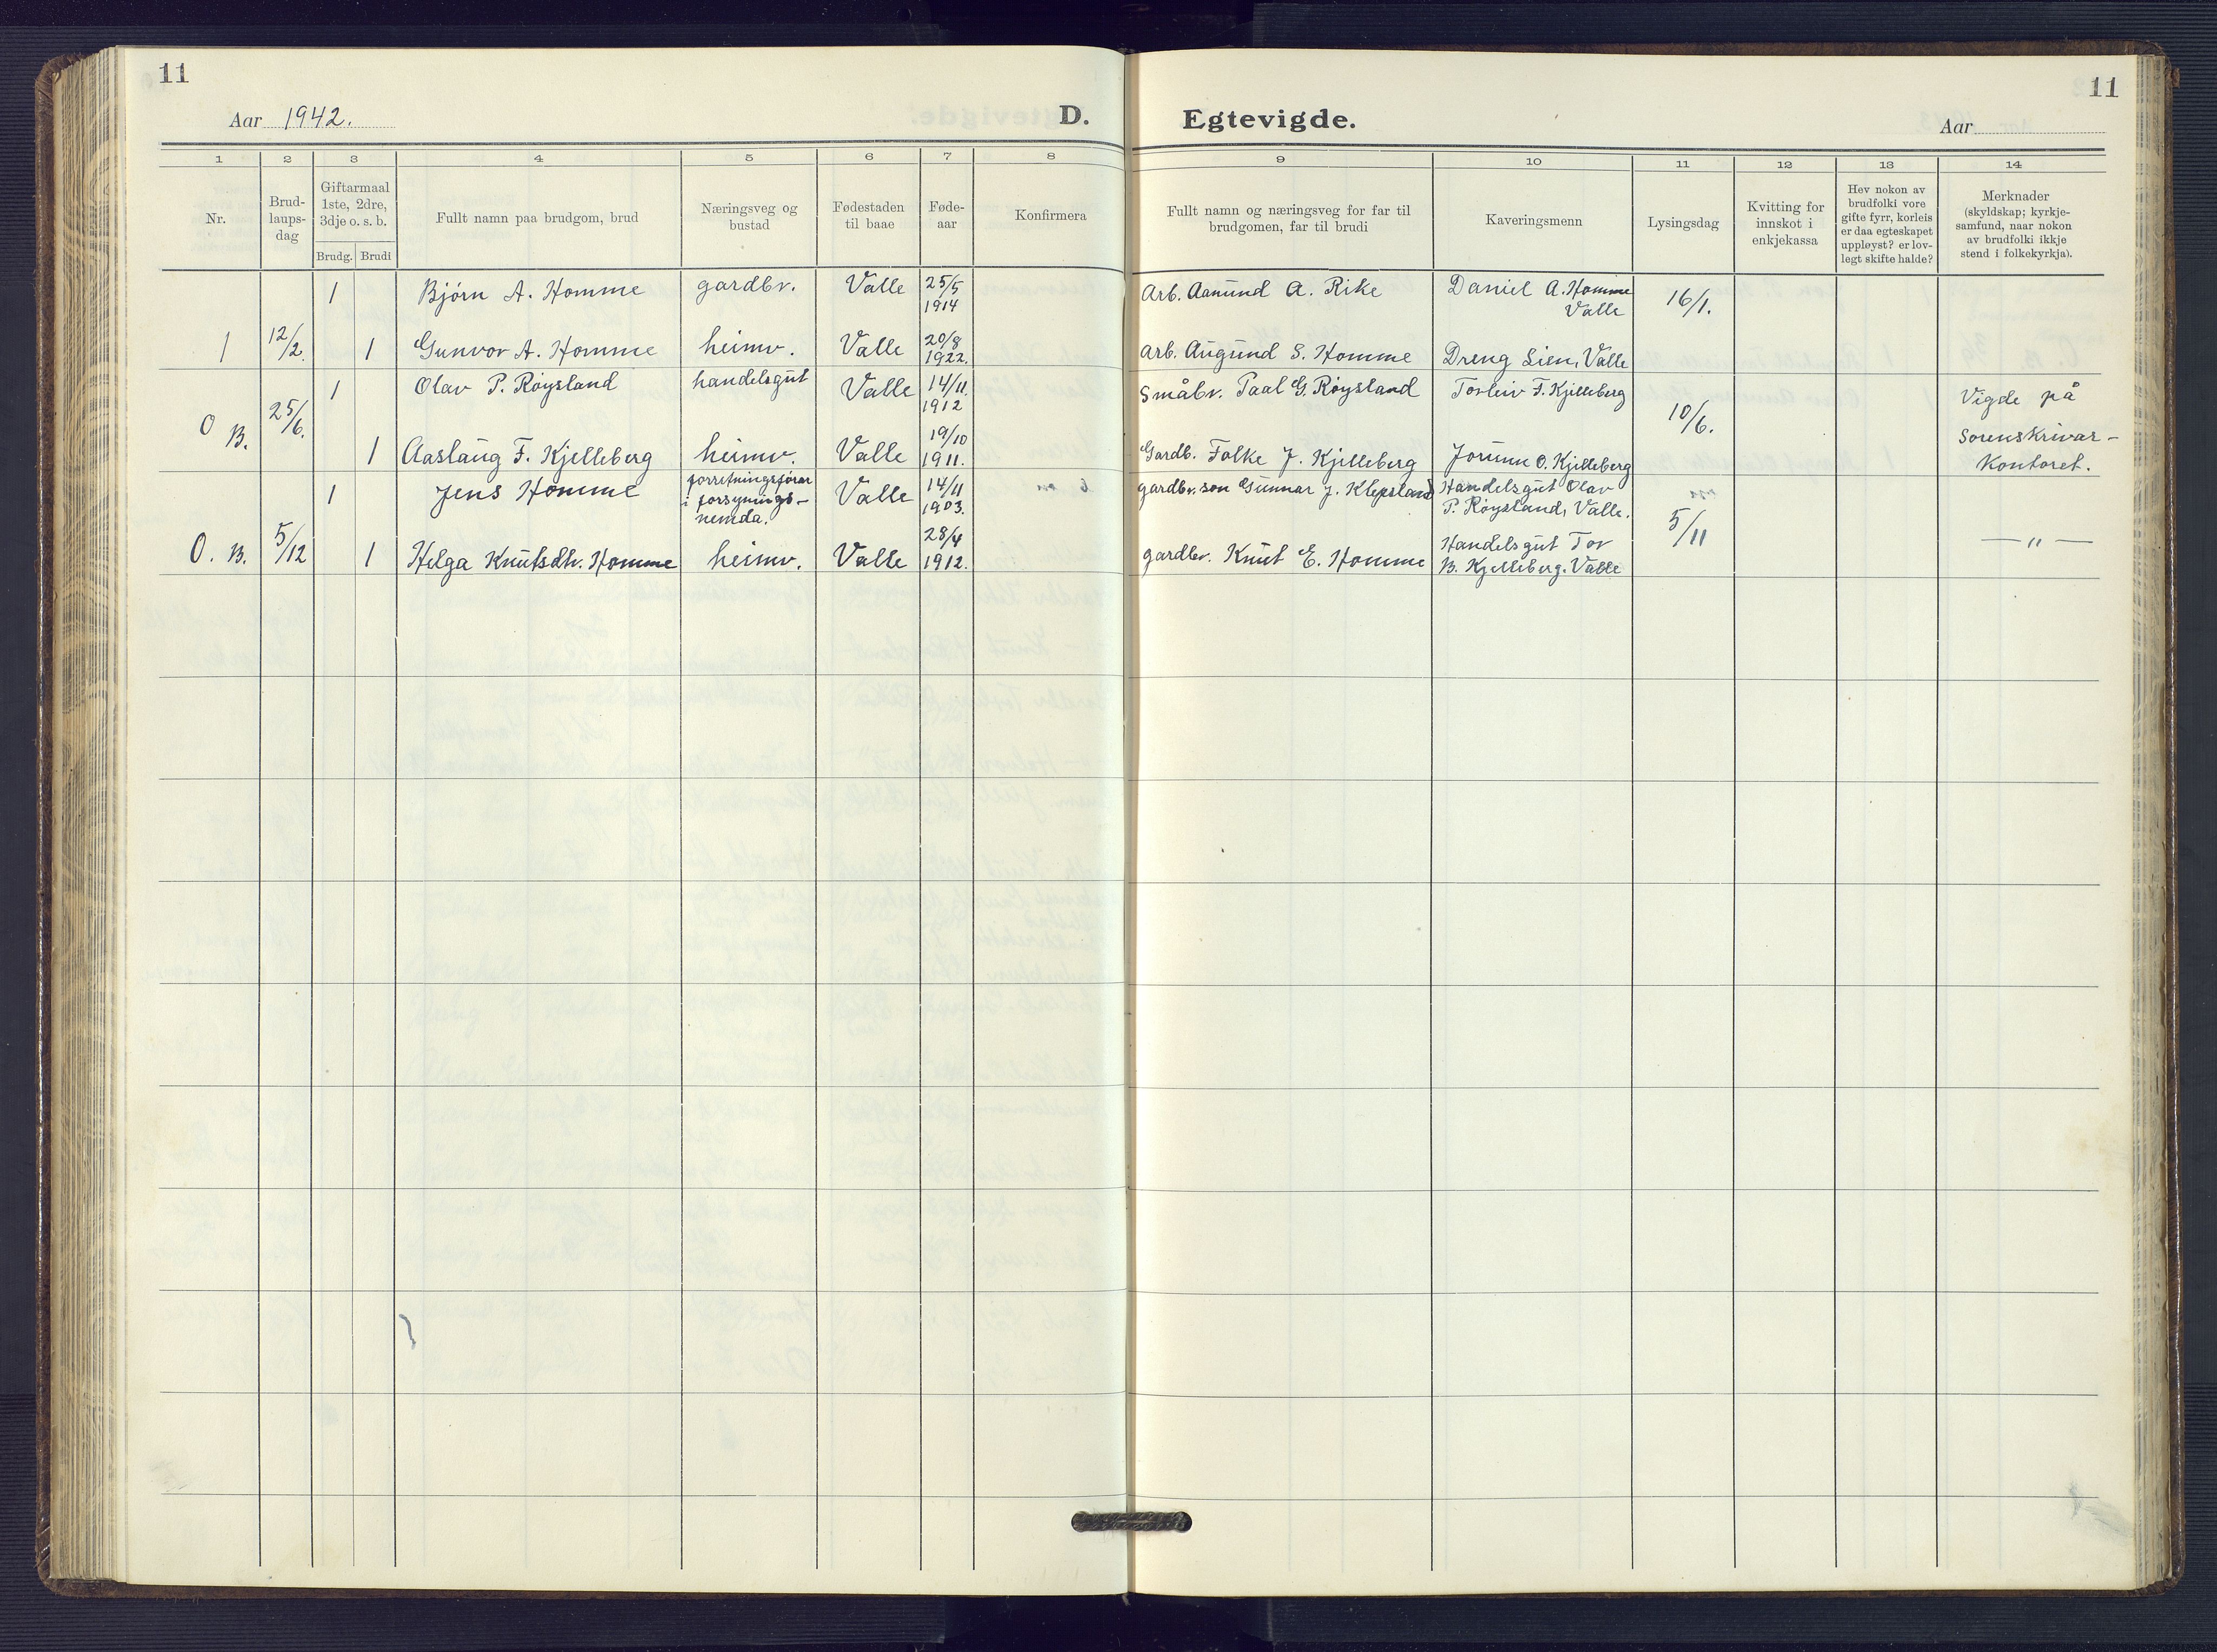 11
Aar 1942.
D.
Egtevigde.
Aar
11
1 2 3 4 5 6 7 8 9 10 11 12 13 14
Nr.
Brud-
laups-
dag
Giftarmaal
1ste, 2dre,
3dje o. s. b.
Brudg. Brudi
Fullt namn paa brudgom, brud
Næringsveg og
bustad
Fødestaden
til baae
Føde-
aar
Konfirmera
Fullt namn og næringsveg for far til
brudgomen, far til brudi
Kaveringsmenn
Lysingsdag
Kvitting for
innskot i
enkjekassa
Hev nokon av
brudfolki vore
gifte fyrr, korleis
er daa egteskapet
uppløyst? er lov-
legt skifte halde?
Merknader
(skyldskap; kyrkje-
samfund, naar nokon
av brudfolki ikkje
stend i folkekyrkja).
1 Bjørn A. Homme gardbr. Valle 25/5 1914 Arb. Aanund A. Rike Daniel A. Homme Valle 16/1.
1 12/2. 1 Gunvor A. Homme heimv. Valle 20/8 1922. Arb. Augund S. Homme Dreng Lien, Valle
1 Olav P. Røysland handelsgut Valle 14/11. 1912 Småbr. Paal G. Røysland Torleiv F. Kjelleberg 10/6. Vigde på
O B. 25/6. 1 Aaslaug F. Kjelleberg heimv. Valle 19/10 1911. Gardb. Folke J. Kjelleberg Jorunn O. Kjelleberg sorenskrivar-
kontoret.
1 Jens Homme forretningsførar
i forsynings-
nemda. Valle 14/11 1903. gardbr. son Gunnar J. Klepsland Handelsgut Olav
P. Røysland, Valle.
O. B. 5/12 1 Helga Knutsdtr. Homme heimv. Valle 28/4 1912. gardbr. Knut E. Homme Handelsgut Tor
B. Kjelleberg. Valle 5/11 — " —